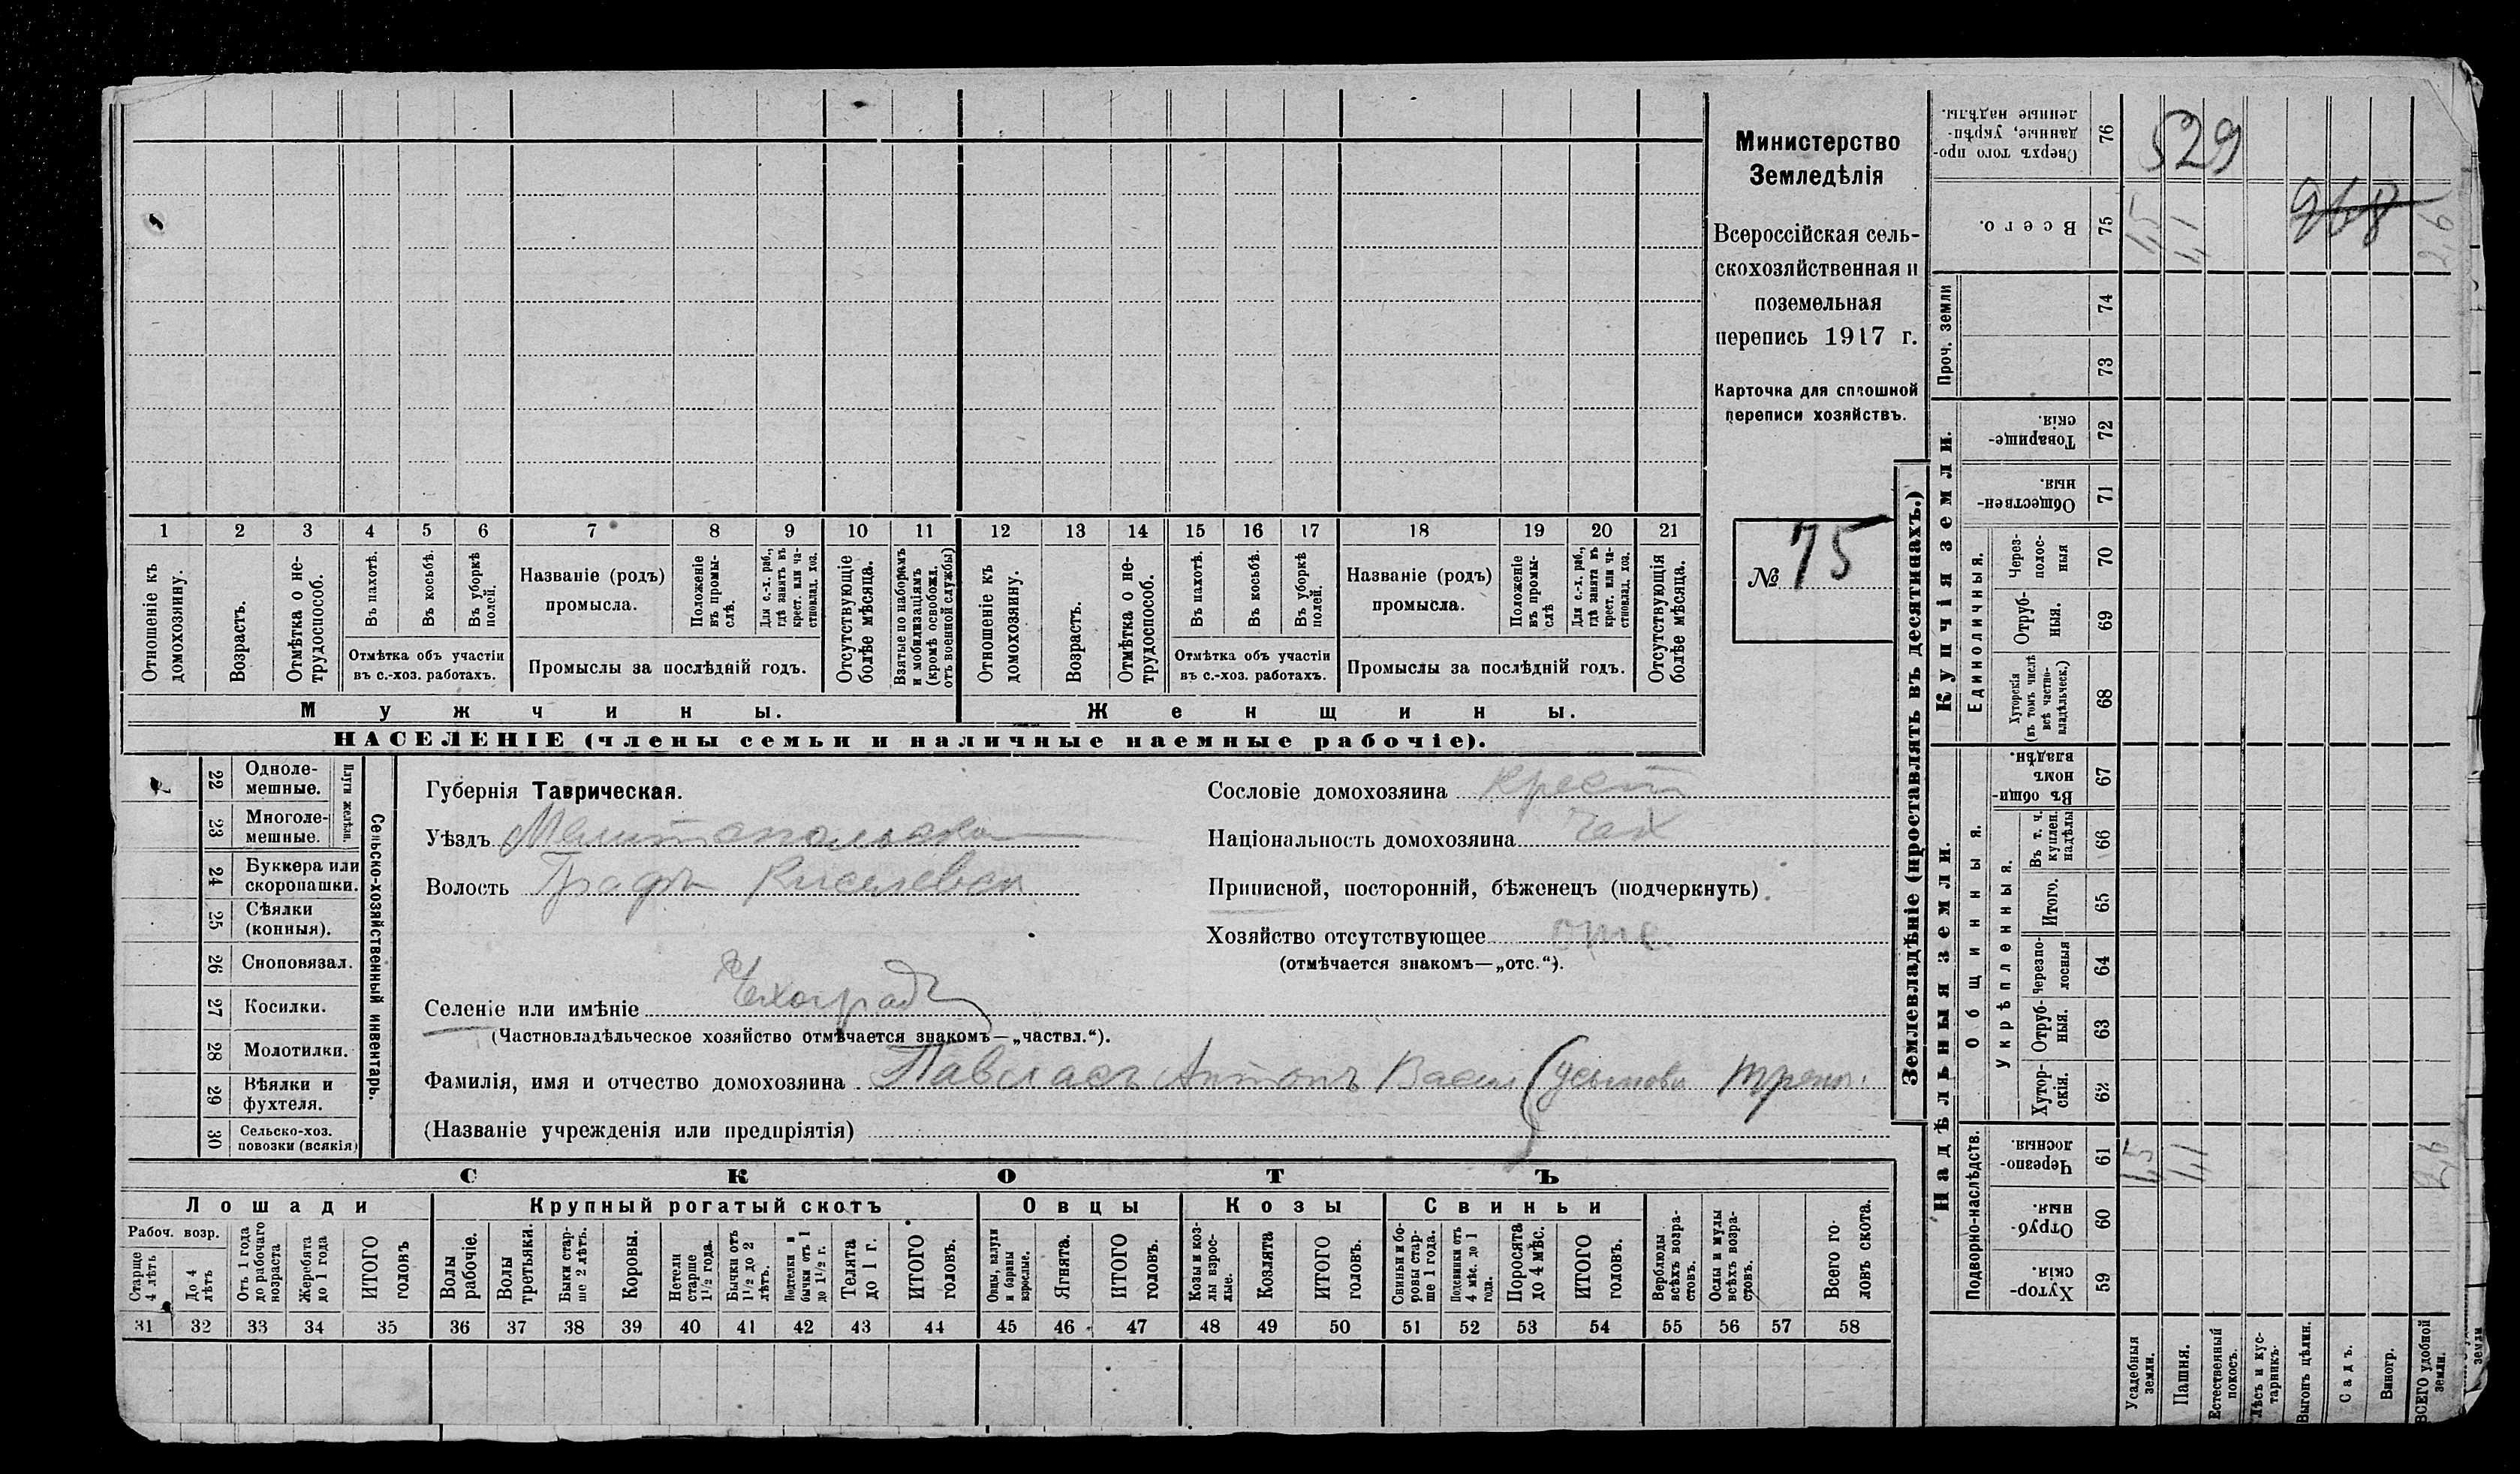 Министерство
Земледѣлія
Всероссійская сель-
скохозяйственная и
поземельная
перепись 1917 г.
Карточка для сплошной
переписи хозяйствъ.
№ 75
1 2 3 4 5 6 7 8 9 10 11 12 13 14 15 16 17 18 19 20 21
Отношеніе къ домохозяину.
Возрастъ.
Отмѣтка о не-трудоспособ.
Въ пахотѣ.
Въ косьбѣ.
Въ уборкѣ полей.
Отмѣтка объ участіи
въ с.-хоз. работахъ.
Названіе (родъ)
промысла.
Положеніе въ промы-слѣ.
Для с.-х. раб., гдѣ занятъ въ крест. или ча-стновлад. хоз.
Промыслы за послѣдній годъ.
Отсутствующіе болѣе мѣсяца.
Взятые по наборамъ и мобилизаціямъ (кромѣ освобожд. отъ военной службы)
Отношеніе къ домохозяину.
Возрастъ.
Отмѣтка о не-трудоспособ.
Въ пахотѣ.
Въ косьбѣ.
Въ уборкѣ полей.
Отмѣтка объ участіи
въ с.-хоз. работахъ.
Названіе (родъ)
промысла.
Положеніе въ промы-слѣ
Для с.-х. раб., гдѣ занята въ крест. или ча-стновлад. хоз.
Промыслы за послѣдній годъ.
Отсутствующія болѣе мѣсяца.
Мужчины.
Женщины.
НАСЕЛЕНІЕ (члены семьи и наличные наемные рабочіе).
22 Одноле-мешные.
23 Многоле-мешные.
Плуги желѣзн.
24 Буккера или скоропашки.
25 Сѣялки (конныя).
26 Сноповязал.
27 Косилки.
28 Молотилки.
29 Вѣялки и фухтеля.
30 Сельско-хоз. повозки (всякія)
Сельско-хозяйственный инвентарь.
Губернія Таврическая.
Уѣздъ Мелитопольскаго
Волость Графъ Киселевская
Селеніе или имѣніе Чехоградъ
(Частновладѣльческое хозяйство отмѣчается знакомъ—„частвл.“).
Фамилія, имя и отчество домохозяина Павласъ Антонъ Васил
(Названіе учрежденія или предпріятія)
Сословіе домохозяина крест
Національность домохозяина чех
Приписной, посторонній, бѣженецъ (подчеркнуть).
Хозяйство отсутствующее отс.
(отмѣчается знакомъ—„отс.“).
СКОТЪ
Лошади
Крупный рогатый скотъ
Овцы
Козы
Свиньи
Рабоч. возр.
Старше 4 лѣтъ
До 4 лѣтъ
Отъ 1 года до рабочаго возраста
Жеребята до 1 года
ИТОГО головъ
Волы рабочіе.
Волы третьяки.
Быки стар-ше 2 лѣтъ.
Коровы.
Нетели старше 1½ года.
Бычки отъ 1½ до 2 лѣтъ.
Подтелки и бычки отъ 1 до 1½ г.
Телята до 1 г.
ИТОГО головъ.
Овцы, валухи и бараны взрослые.
Ягнята.
ИТОГО головъ.
Козы и коз-лы взрос-лые.
Козлята
ИТОГО головъ.
Свиньи и бо-ровы стар-ше 1 года.
Подсвинки отъ 4 мѣс. до 1 года.
Поросята до 4 мѣс.
ИТОГО головъ.
Верблюды всѣхъ возра-стовъ.
Ослы и мулы всѣхъ возра-стовъ.
Всего го-ловъ скота.
31 32 33 34 35 36 37 38 39 40 41 42 43 44 45 46 47 48 49 50 51 52 53 54 55 56 57 58
Землевладѣніе (проставлять въ десятинахъ.)
Надѣльныя земли.
Купчія земли.
Проч. земли
Подворно-наслѣдств.
Общинныя.
Укрѣпленныя.
Единоличныя.
Сверхъ того про-данные, укрѣп-ленные надѣлы. 76
529
Всего. 75
968
74
73
Товарище-скія. 72
Обществен-ныя. 71
Через-полос-ныя 70
Отруб-ныя. 69
Хуторскія (въ томъ числѣ всѣ частно-владѣльческ.) 68
Въ общи-номъ владѣн. 67
Въ т. ч. куплен. надѣлы 66
Итого. 65
Черезпо-лосныя 64
Отруб-ныя. 63
Хутор-скія. 62
Черезпо-лосныя. 61
Отруб-ныя. 60
Хутор-скія. 59
Усадебныя земли.
Пашня.
Естественный покосъ.
Лѣсъ и кус-тарникъ.
Выгонъ цѣлин.
Садъ.
Виногр.
ВСЕГО удобной земли.
земли